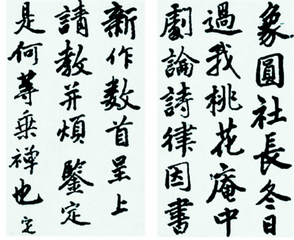 象圓社長冬日
過我桃花庵中
劇論詩律因書
新作数首呈上
請教并煩鑒定
是何等乗禅也定